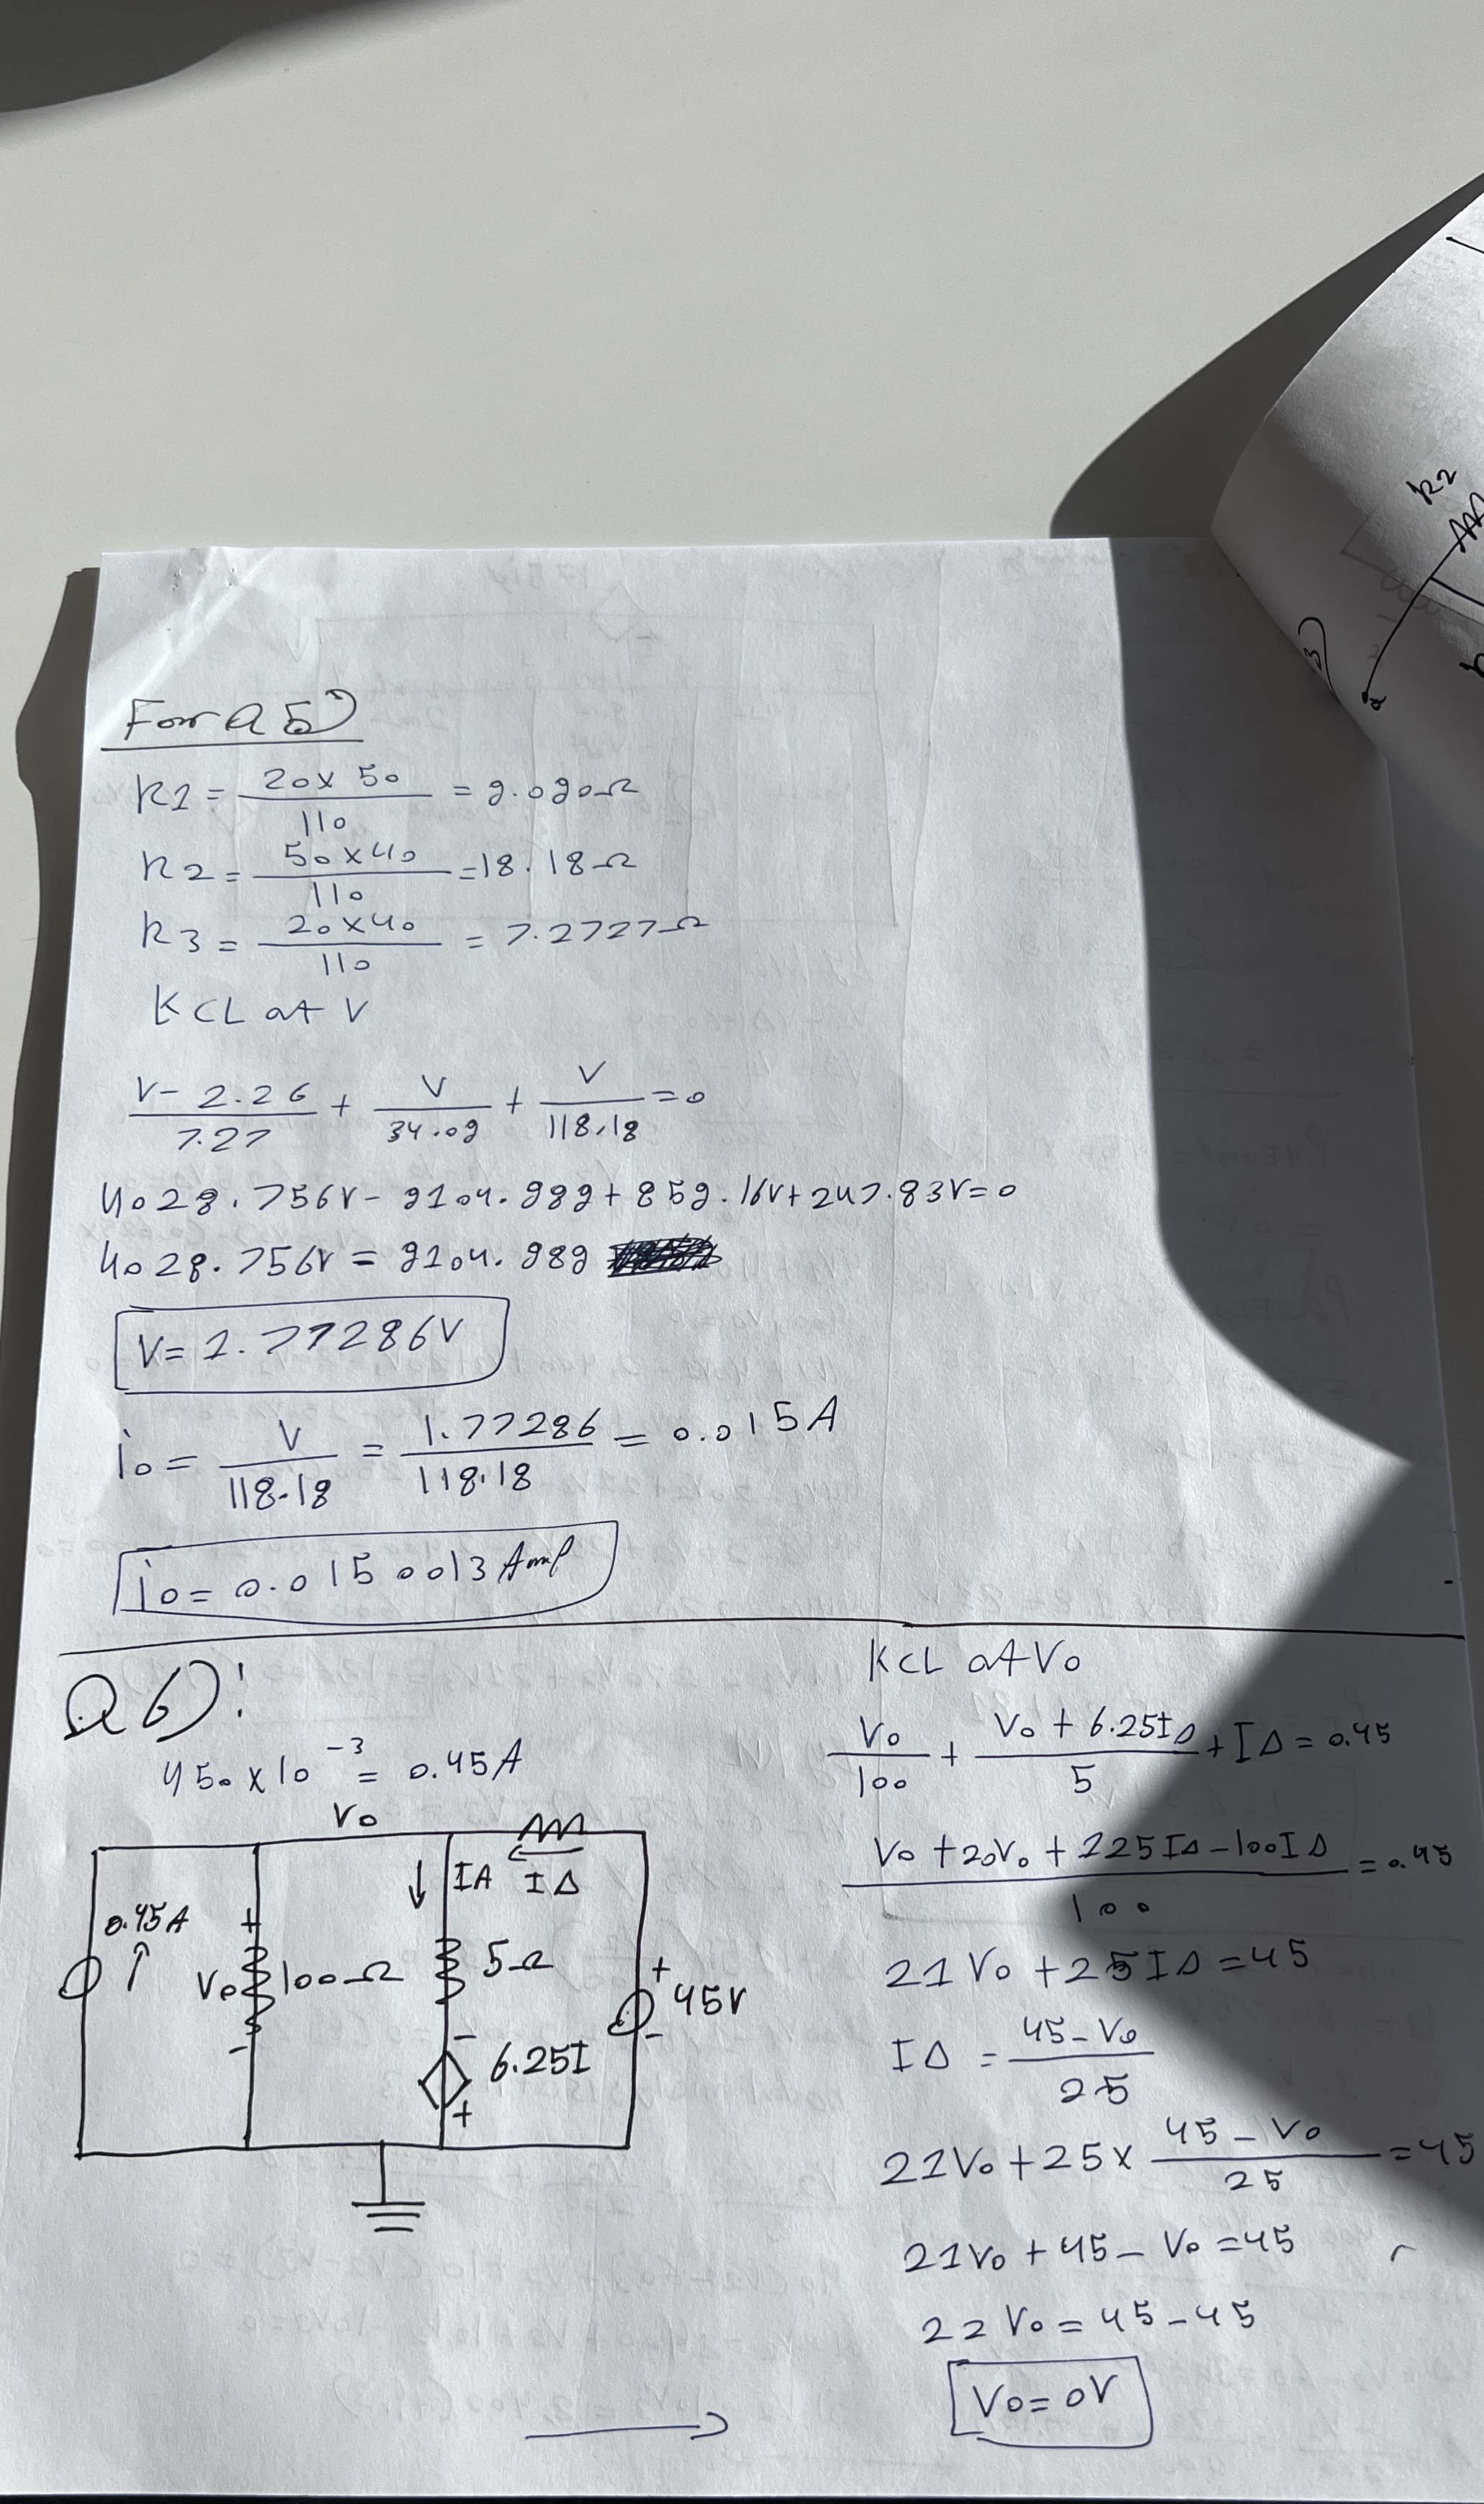 For Q5)
R1 = 20 x 50 / 110 = 9.090Ω
R2 = 50 x 40 / 110 = 18.18Ω
R3 = 20 x 40 / 110 = 7.2727Ω
KCL at V
V - 2.26 / 7.27 + V / 34.09 + V / 118.18 = 0
4028.756V - 9104.989 + 859.16V + 247.83V = 0
4028.756V = 9104.989
V = 1.77286V
io = V / 118.18 = 1.77286 / 118.18 = 0.015A
io = 0.0150013 Amp
Q6):
450 x 10^-3 = 0.45A
Vo
IA IΔ
0.45A
+
Vo
-
100Ω
5Ω
+
45V
-
-
6.25I
+
KCL at Vo
Vo / 100 + Vo + 6.25IΔ / 5 + IΔ = 0.45
Vo + 20Vo + 225IΔ - 100IΔ / 100 = 0.45
21Vo + 25IΔ = 45
IΔ = 45 - Vo / 25
21Vo + 25 x 45 - Vo / 25 = 45
21Vo + 45 - Vo = 45
22Vo = 45 - 45
Vo = 0V
R2
3)
a